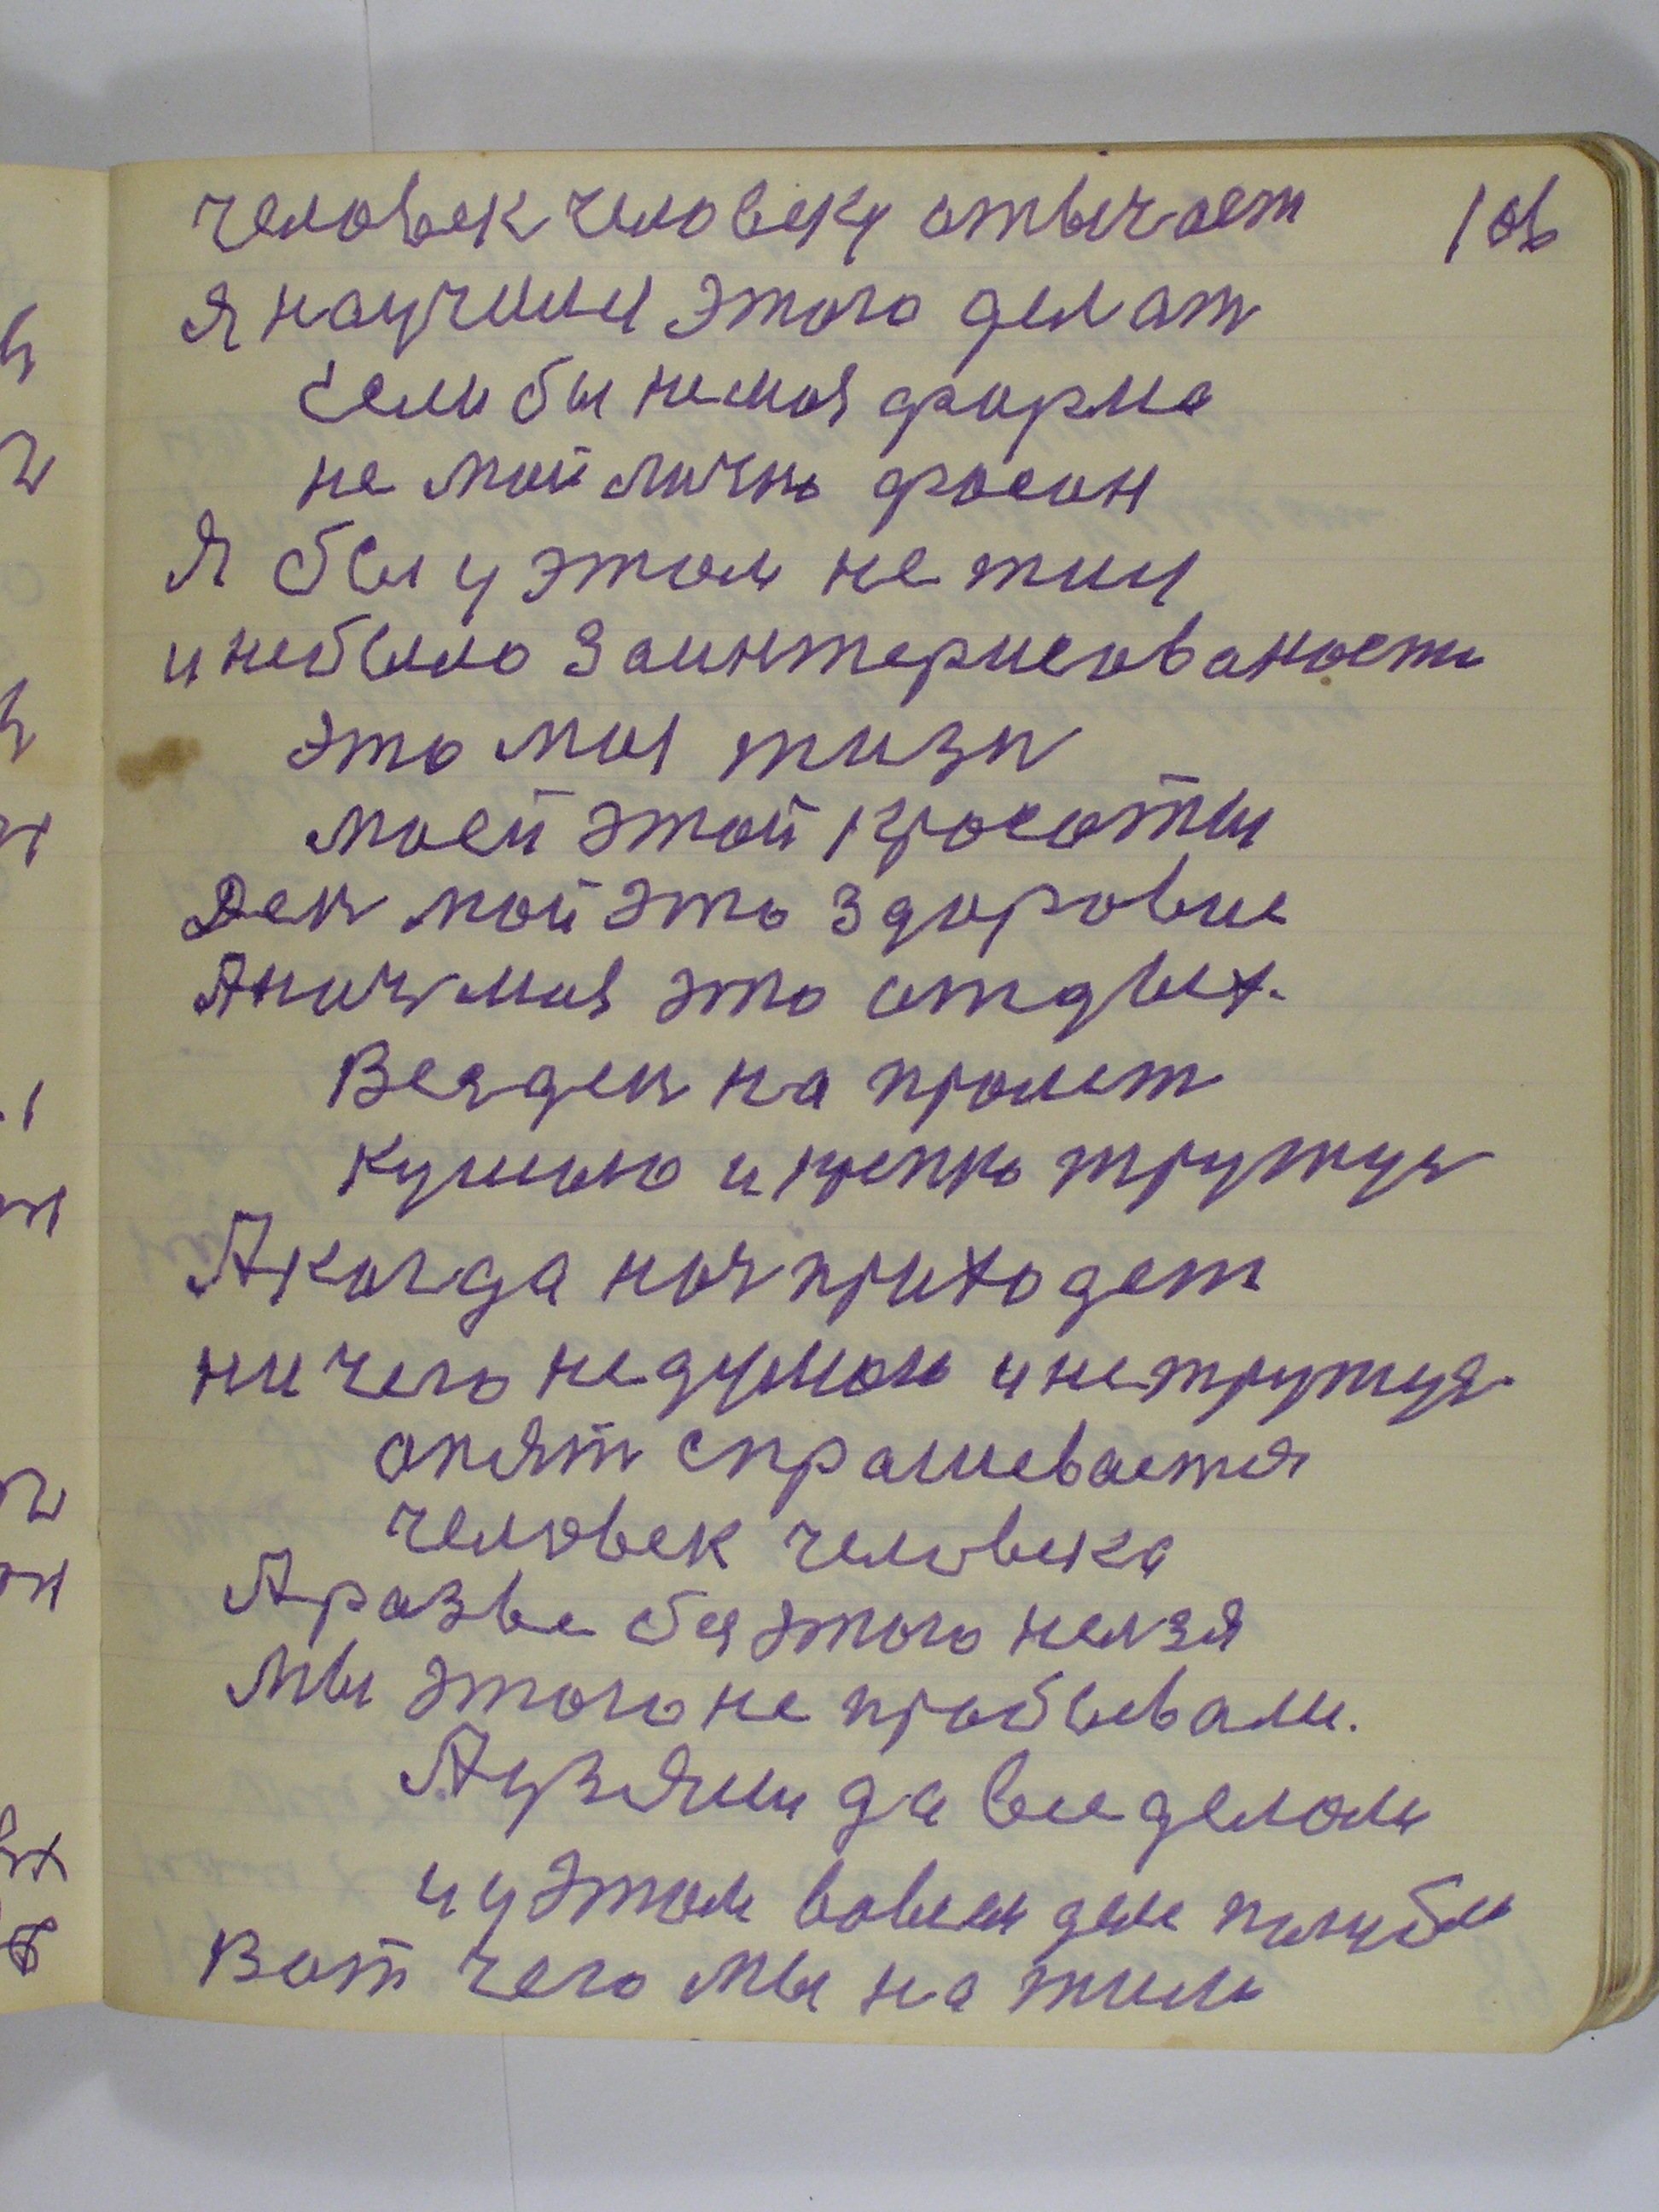 человек человеку отвычает 106
я научился этого делат
Если бы не моя форма
не мой личнь фасон
Я бы у этом не жил
и небыло заинтерисованости
это моя жизн
моей этой красоты
Ден мой это здоровие
А ноч моя это отдых.
Вес ден на пролет
кушаю и крепко тружус
А когда ноч приходет
ни чего не думаю и не тружуся.
опят спрашевается
человек человека
А разве без этого нелзя
Мы этого не пробывали.
А узяли да все делом
и у этом во всем деле
Вот чего мы на жили